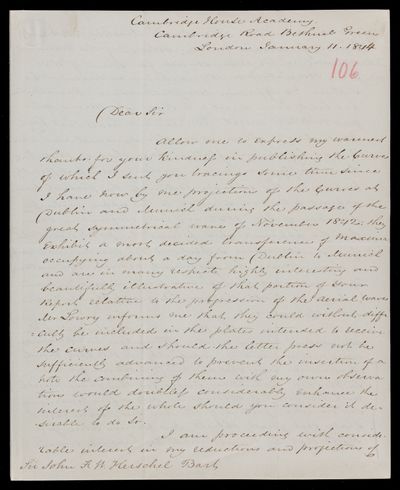 Cambridge House Academy
Cambridge Road Bethnal Green
London January 11. 1844
106
Dear Sir
Allow me to express my warmest
thanks for your kindness in publishing the Curves
of which I sent you tracings some time since
I have now by me projections of the Curves at
Dublin and Munich during the passage of the
great symmetrical wave of November 1842. they
exhibit a most decided transference of Maxima
occupying about a day from Dublin to Munich
and are in many respects highly interesting and
beautifully illustrative of that portion of your
Report relative to the progression of the Aerial waves
Mr Lowry informs me that they could without diffi-
culty be included in the plates intended to receive
the curves and should the letter press not be
sufficiently advanced to prevent the insertion of a
note the combining of these with my own observa
tions would doubtless considerably enhance the
interest of the whole should you consider it de-
sirable to do so.
I am proceeding with conside-
rable interest in my reductions and projections of
Sir John F. W. Herschel Bart